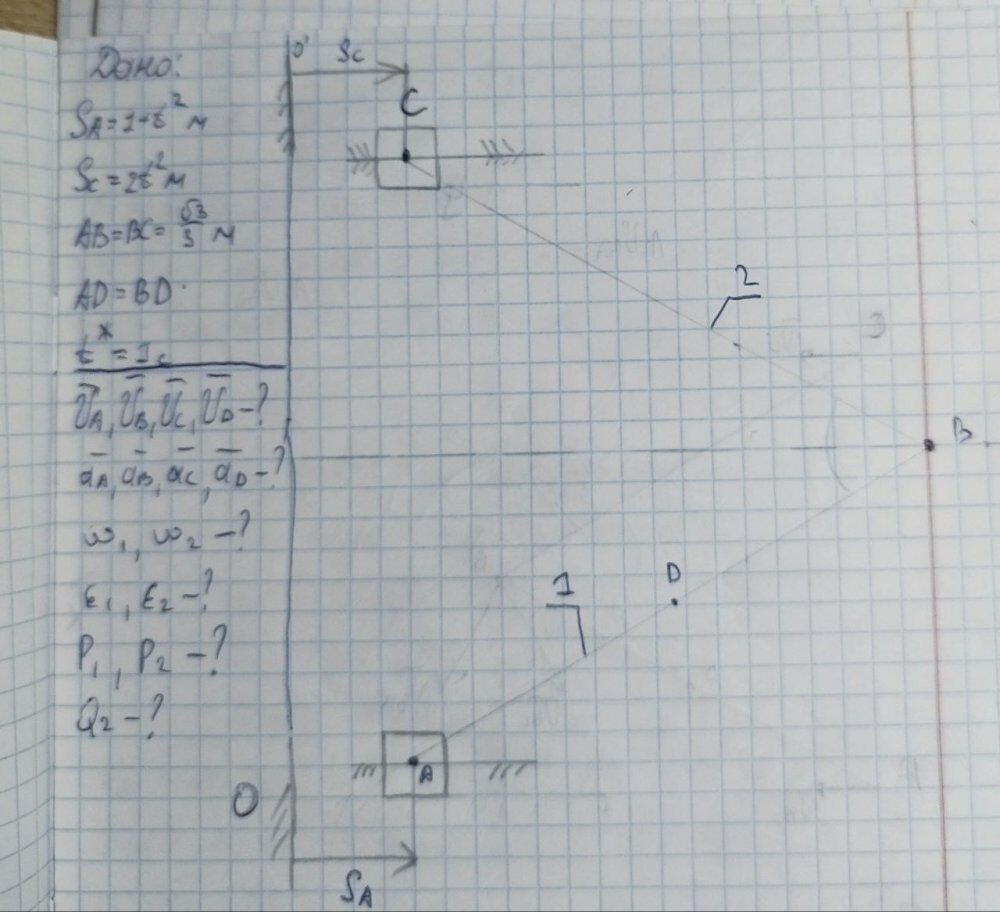 Дано:
SA = 1+t² м
Sc = 2t² м
AB=BC= √3/3 м
AD = BD
t* = 1c
v̄A, v̄B, v̄C, v̄D -?
āA, āB, āC, āD -?
ω₁, ω₂ -?
ε₁, ε₂ -?
P₁, P₂ -?
Q₂ -?
O'
Sc
C
2
B
D
1
A
O
SA